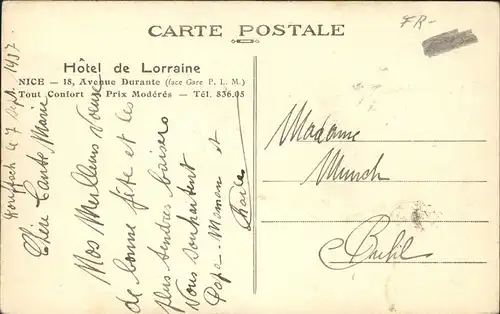 CARTE POSTALE
FR-
Hôtel de Lorraine
NICE — 18, Avenue Durante (face Gare P. L. M.)
Tout Confort — Prix Modérés — Tél. 836.05
le 7 1937
Chère Tante Marie
Nos Meilleurs Voeux
de bonne fête et les
plus tendres baisers
Vous souhaitent
Papa - Maman et
Madame
Munch
Buhl